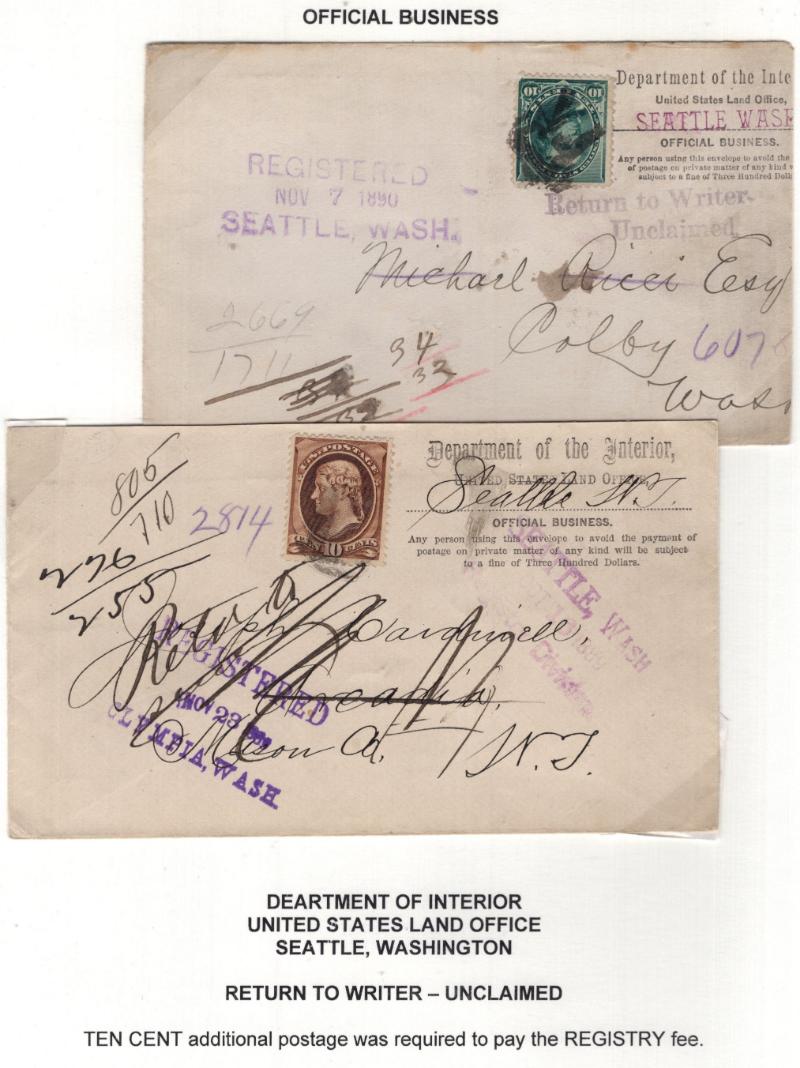 OFFICIAL BUSINESS
10 10
Department of the Inte
United States Land Office,
SEATTLE WASH
OFFICIAL BUSINESS.
Any person using this envelope to avoid the
of postage on private matter of any kind
subject to a fine of Three Hundred Doll
REGISTERED
NOV 7 1890
SEATTLE, WASH.
Return to Writer-
Unclaimed.
Michael Ricci Esq
Colby 607
Wash
2669
1711
34
33
32
U.S. POSTAGE
10
Department of the Interior,
UNITED STATES LAND OFFICE,
Seattle W.T.
OFFICIAL BUSINESS.
Any person using this envelope to avoid the payment of
postage on private matter of any kind will be subject
to a fine of Three Hundred Dollars.
805
710
2814
226
255
SEATTLE, WASH
Joseph
Arcadia.
Mason Co.
W.T.
REGISTERED
NOV 23
OLYMPIA, WASH.
DEARTMENT OF INTERIOR
UNITED STATES LAND OFFICE
SEATTLE, WASHINGTON
RETURN TO WRITER – UNCLAIMED
TEN CENT additional postage was required to pay the REGISTRY fee.